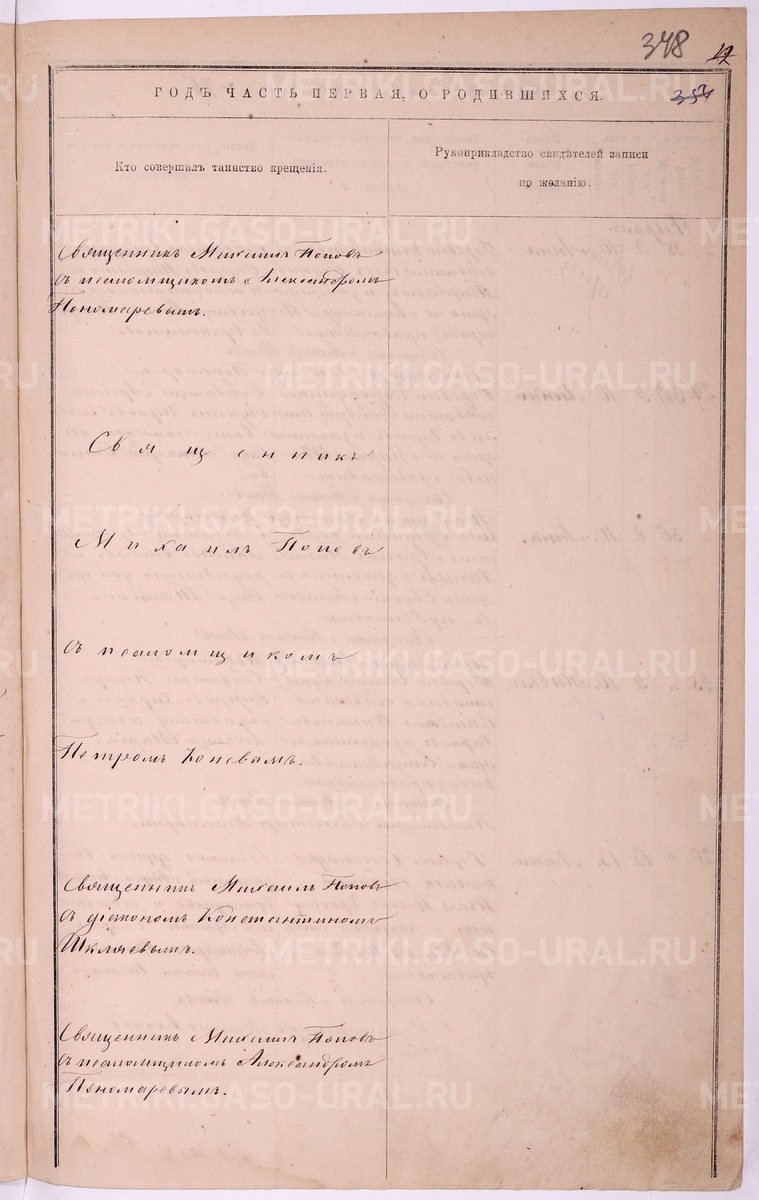 348
ГОДЪ ЧАСТЬ ПЕРВАЯ, О РОДИВШИХСЯ.
Кто совершалъ таинство крещенія.
Рукоприкладство свидѣтелей записи
по желанію.
Священникъ Михаилъ Поповъ
съ псаломщикомъ Александромъ
Пономаревымъ.
Священникъ
Михаилъ Поповъ
съ псаломщикомъ
Петромъ Коневымъ.
Священникъ Михаилъ Поповъ
съ діакономъ Константиномъ
Шкляевымъ.
Священникъ Михаилъ Поповъ
съ псаломщикомъ Александромъ
Пономаревымъ.
METRIKI.GASO-URAL.RU